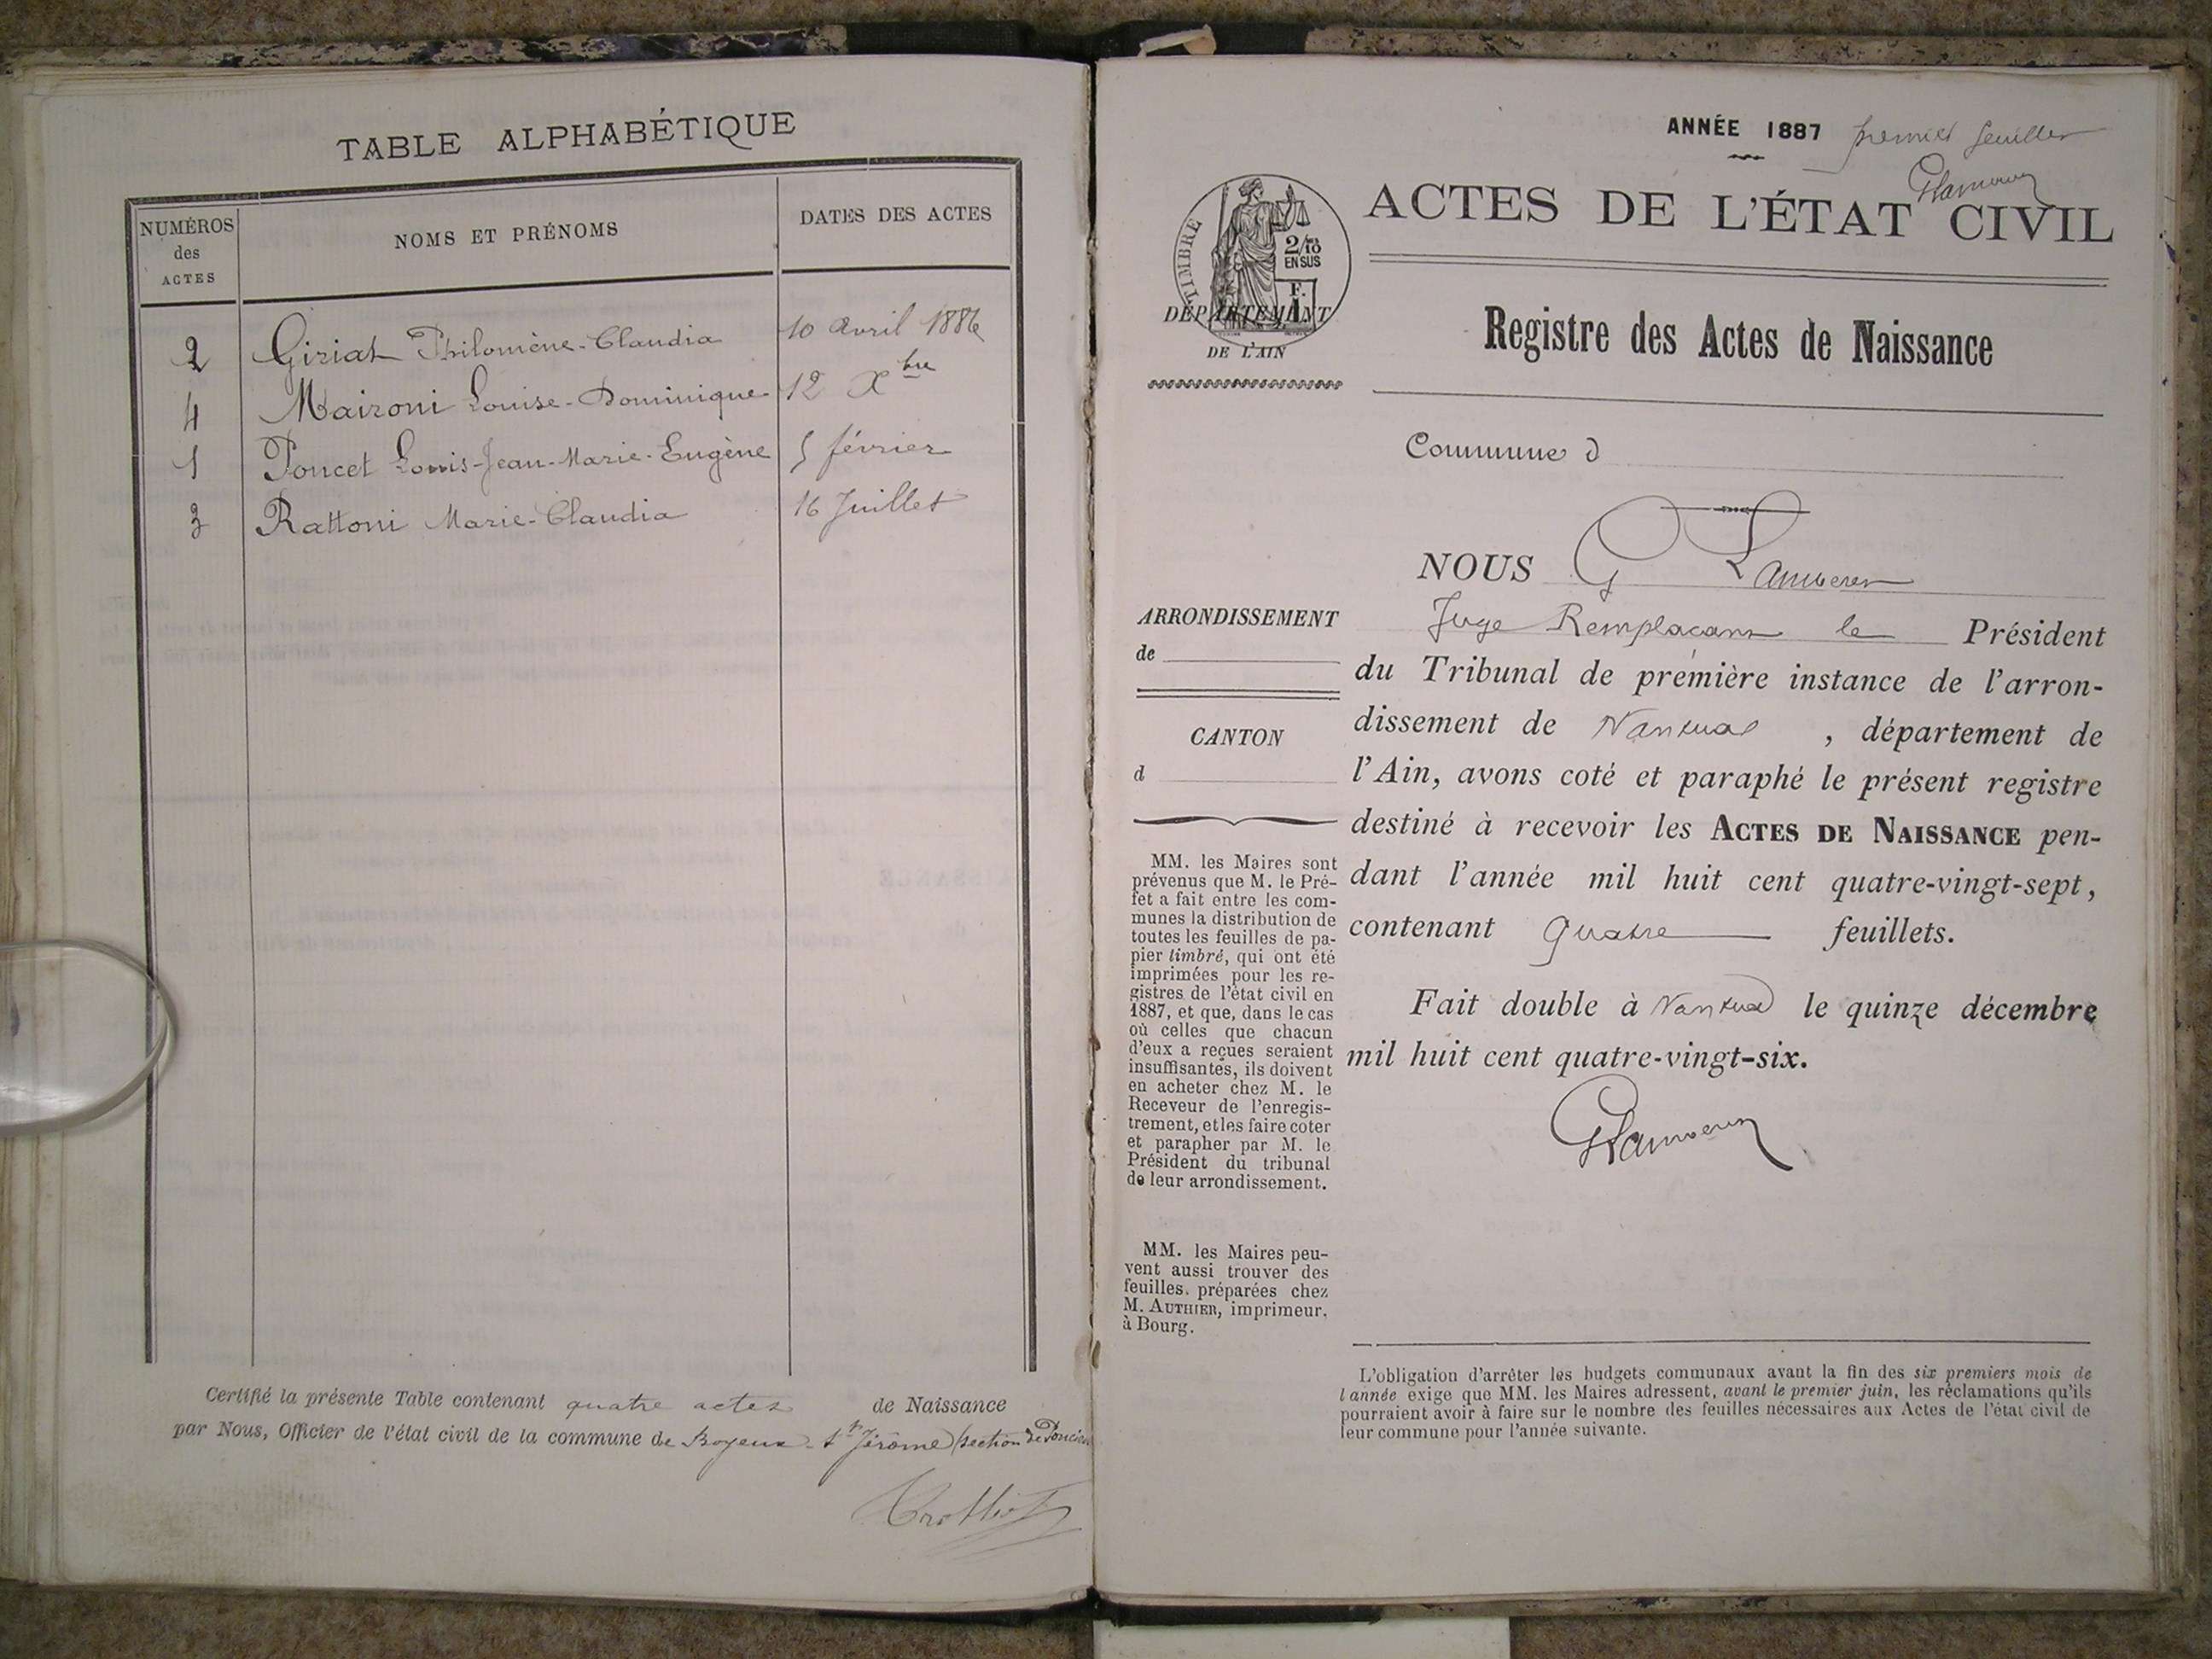 TABLE ALPHABÉTIQUE
NUMÉROS
des
ACTES
NOMS ET PRÉNOMS
DATES DES ACTES
2 Giriat Philomène-Claudia 10 avril 1886
4 Maironi Louise-Dominique 12 Xbre
1 Poncet Louis-Jean-Marie-Eugène 5 février
3 Rattoni Marie-Claudia 16 Juillet
Certifié la présente Table contenant quatre actes de Naissance
par Nous, Officier de l'état civil de la commune de Boyeux-St Jérôme (section de Poncieu
ANNÉE 1887 premier feuillet
ACTES DE L'ÉTAT CIVIL
TIMBRE
2/10
EN SUS
F.
DÉPARTEMENT
DE L'AIN
Registre des Actes de Naissance
Commune d
NOUS G
Juge Remplaçant le Président
du Tribunal de première instance de l'arron-
dissement de Nantua, département de
l'Ain, avons coté et paraphé le présent registre
destiné à recevoir les ACTES DE NAISSANCE pen-
dant l'année mil huit cent quatre-vingt-sept,
contenant quatre feuillets.
Fait double à Nantua le quinze décembre
mil huit cent quatre-vingt-six.
ARRONDISSEMENT
de
CANTON
d
MM. les Maires sont
prévenus que M. le Pré-
fet a fait entre les com-
munes la distribution de
toutes les feuilles de pa-
pier timbré, qui ont été
imprimées pour les re-
gistres de l'état civil en
1887, et que, dans le cas
où celles que chacun
d'eux a reçues seraient
insuffisantes, ils doivent
en acheter chez M. le
Receveur de l'enregis-
trement, et les faire coter
et parapher par M. le
Président du tribunal
de leur arrondissement.
MM. les Maires peu-
vent aussi trouver des
feuilles préparées chez
M. AUTHIER, imprimeur,
à Bourg.
L'obligation d'arrêter les budgets communaux avant la fin des six premiers mois de
l'année exige que MM. les Maires adressent, avant le premier juin, les réclamations qu'ils
pourraient avoir à faire sur le nombre des feuilles nécessaires aux Actes de l'état civil de
leur commune pour l'année suivante.